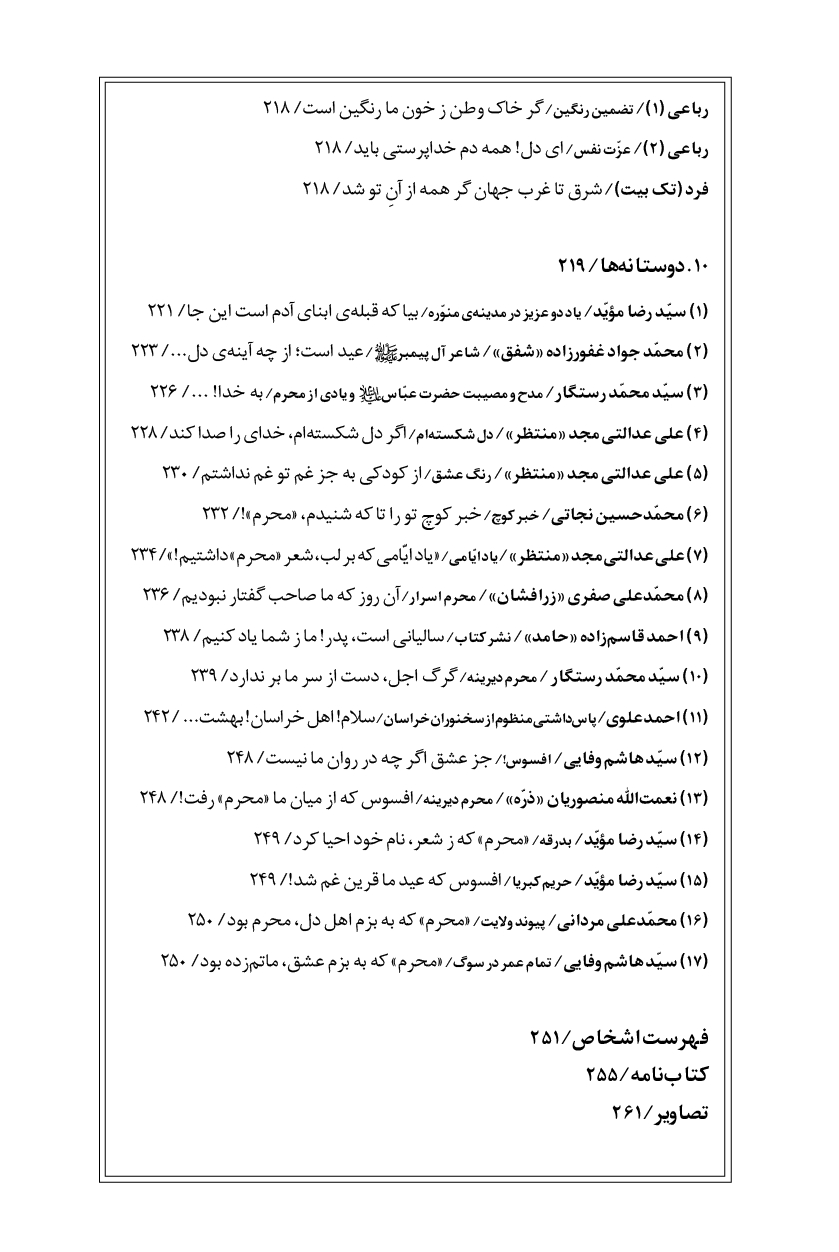 رباعی (۱)/ تضمین رنگین/ گر خاک وطن ز خون ما رنگین است/ ۲۱۸
رباعی (۲)/ عزّت نفس/ ای دل! همه دم خداپرستی باید/ ۲۱۸
فرد (تک بیت)/ شرق تا غرب جهان گر همه از آنِ تو شد/ ۲۱۸
۱۰. دوستانه‌ها/ ۲۱۹
(۱) سیّد رضا مؤیّد/ یاد دو عزیز در مدینه‌ی منوّره/ بیا که قبله‌ی ابنای آدم است این جا/ ۲۲۱
(۲) محمّد جواد غفورزاده «شفق»/ شاعر آل پیمبر ﷺ/ عید است؛ از چه آینه‌ی دل.../ ۲۲۳
(۳) سیّد محمّد رستگار/ مدح و مصیبت حضرت عبّاس و یادی از محرم/ به خدا! .../ ۲۲۶
(۴) علی عدالتی مجد «منتظر»/ دل شکسته‌ام/ اگر دل شکسته‌ام، خدای را صدا کند/ ۲۲۸
(۵) علی عدالتی مجد «منتظر»/ رنگ عشق/ از کودکی به جز غم تو غم نداشتم/ ۲۳۰
(۶) محمّدحسین نجاتی/ خبر کوچ/ خبر کوچ تو را تا که شنیدم، «محرم»!/ ۲۳۲
(۷) علی عدالتی مجد «منتظر»/ یاد ایّامی/ «یاد ایّامی که بر لب، شعر «محرم» داشتیم!»/ ۲۳۴
(۸) محمّدعلی صفری «زرافشان»/ محرم اسرار/ آن روز که ما صاحب گفتار نبودیم/ ۲۳۶
(۹) احمد قاسم‌زاده «حامد»/ نشر کتاب/ سالیانی است، پدر! ما ز شما یاد کنیم/ ۲۳۸
(۱۰) سیّد محمّد رستگار/ محرم دیرینه/ گرگ اجل، دست از سر ما بر ندارد/ ۲۳۹
(۱۱) احمد علوی/ پاس‌داشتی منظوم از سخنوران خراسان/ سلام! اهل خراسان! بهشت... / ۲۴۲
(۱۲) سیّد هاشم وفایی/ افسوس!/ جز عشق اگر چه در روان ما نیست/ ۲۴۸
(۱۳) نعمت‌الله منصوریان «ذرّه»/ محرم دیرینه/ افسوس که از میان ما «محرم» رفت!/ ۲۴۸
(۱۴) سیّد رضا مؤیّد/ بدرقه/ «محرم» که ز شعر، نام خود احیا کرد/ ۲۴۹
(۱۵) سیّد رضا مؤیّد/ حریم کبریا/ افسوس که عید ما قرین غم شد!/ ۲۴۹
(۱۶) محمّدعلی مردانی/ پیوند ولایت/ «محرم» که به بزم اهل دل، محرم بود/ ۲۵۰
(۱۷) سیّد هاشم وفایی/ تمام عمر در سوگ/ «محرم» که به بزم عشق، ماتم‌زده بود/ ۲۵۰
فهرست اشخاص/ ۲۵۱
کتاب‌نامه/ ۲۵۵
تصاویر/ ۲۶۱